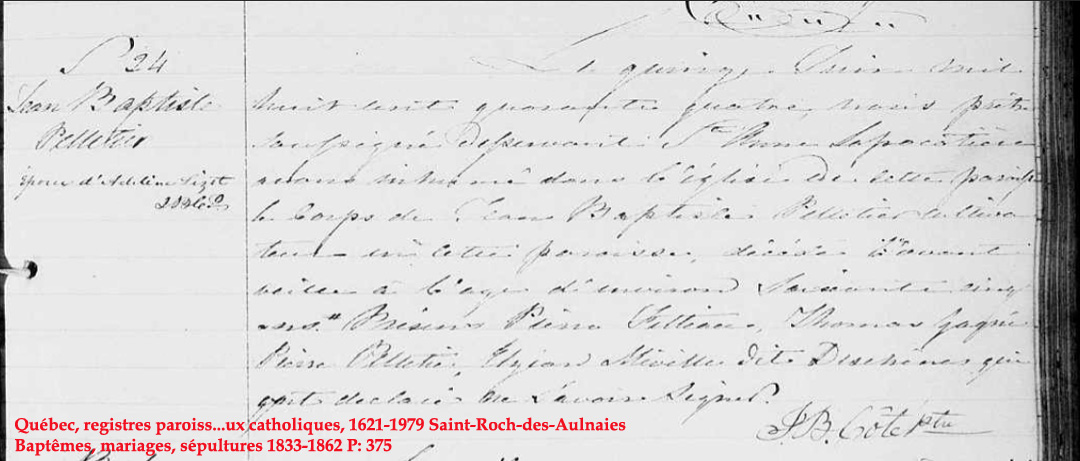 S 24
Jean Baptiste
Pelletier
Epoux d'Adeline Lizot
Le quinze Juin mil
huit cent quarante quatre, nous prêtre
soussigné desservant Ste Anne Lapocatière
avons inhumé dans l'église de cette paroisse
le Corps de Jean Baptiste Pelletier cultiva
teur en cette paroisse, décédé l'avant
veille à l'age d'environ Soixante cinq
ans. Présens Pierre Pelletier, Thomas Gagné
Pierre Pelletier, Elzéar Miville dit Deschènes qui
ont déclaré ne savoir signer.
J. B. Côté Ptre
Québec, registres paroiss...ux catholiques, 1621-1979 Saint-Roch-des-Aulnaies
Baptêmes, mariages, sépultures 1833-1862 P: 375